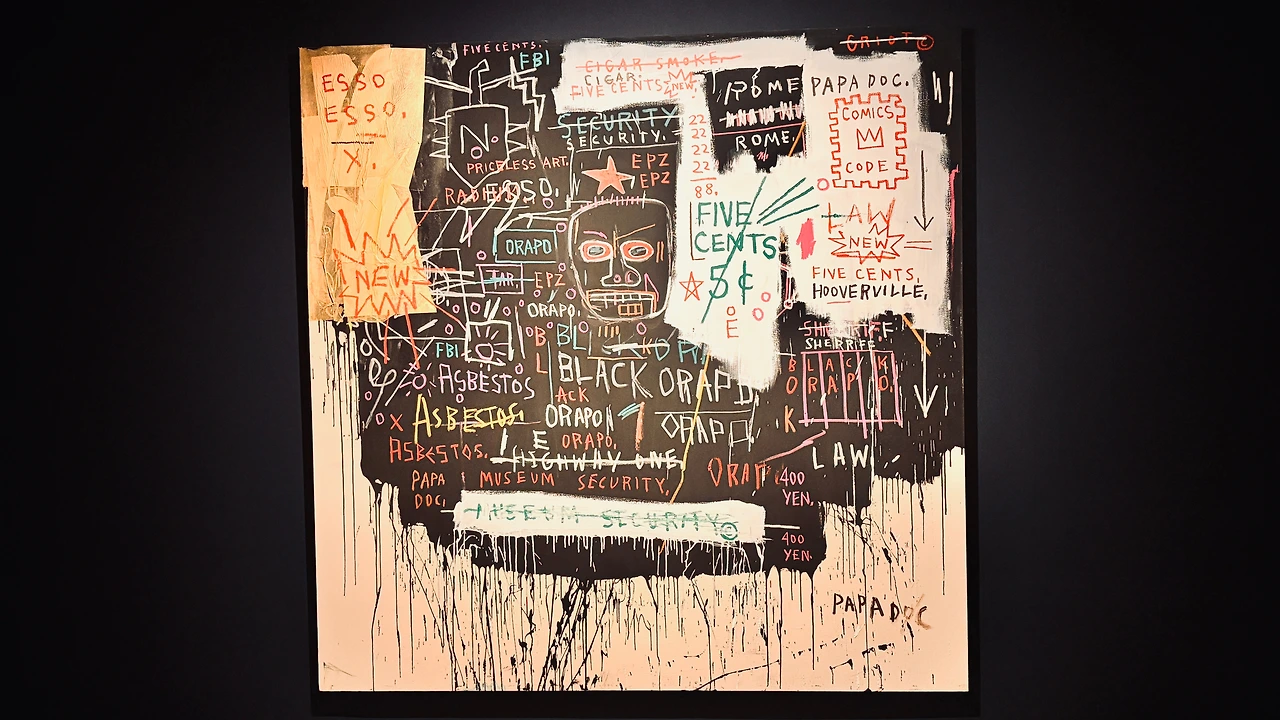 ESSO
ESSO.
X.
NEW
FIVE CENTS.
FBI
N.
PRICELESS ART.
RADIUM.
ESSO.
CIGAR SMOKE.
CIGAR.
FIVE CENTS
NEW.
SECURITY
SECURITY.
EPZ
EPZ
ORAPO
TAR.
EPZ
ORAPO.
FBI
BL
ASBESTOS
BLACK ORAPO
ACK
ASBESTOS.
ORAPO
ORAPO
ORAPO.
ASBESTOS.
HIGHWAY ONE
PAPA
DOC.
MUSEUM SECURITY.
MUSEUM SECURITY©
ROME
ROME.
22
22
22
22
88.
FIVE
CENTS
5¢
E
GRIOT©
PAPA DOC.
COMICS
CODE
LAW
NEW
FIVE CENTS.
HOOVERVILLE.
SHERRIFF
SHERRIFF
BLACK
ORAPO.
LAW
400
YEN.
400
YEN.
PAPA DOC